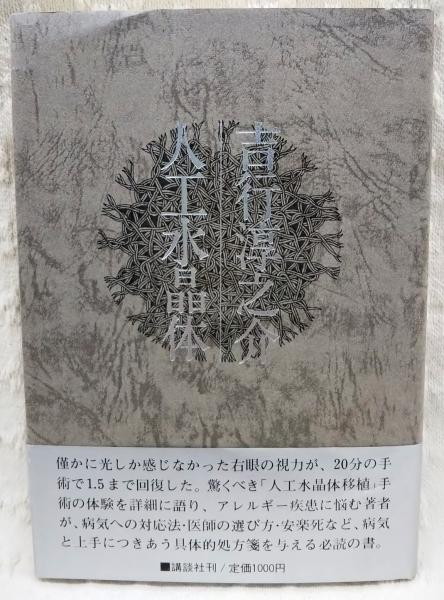 吉行淳之介
人工水晶体
僅かに光しか感じなかった右眼の視力が、20分の手
術で1.5まで回復した。驚くべき「人工水晶体移植」手
術の体験を詳細に語り、アレルギー疾患に悩む著者
が、病気への対応法・医師の選び方・安楽死など、病気
と上手につきあう具体的処方箋を与える必読の書。
■講談社刊/定価1000円